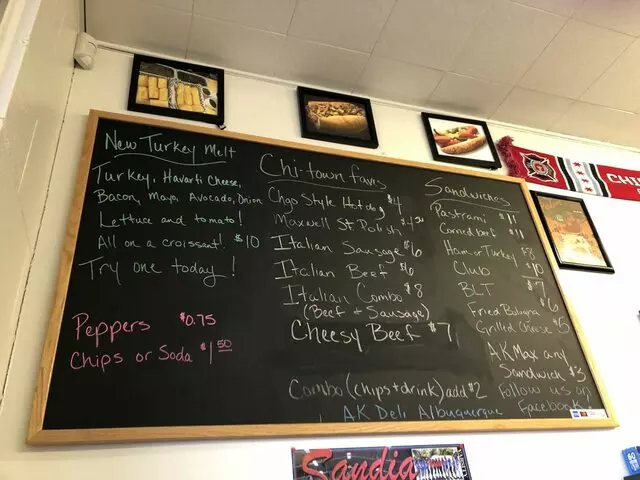 New Turkey Melt
Turkey, Havarti Cheese,
Bacon, Mayo, Avocado, Onion
Lettuce and tomato!
All on a croissant! $10
Try one today!
Peppers $0.75
Chips or Soda $1.50
Chi-town faves
Chgo Style Hotdog $4
Maxwell St Polish
Italian Sausage $6
Italian Beef $6
Italian Combo $8
(Beef + Sausage)
Cheesy Beef $7
Combo (chips+drink) add $2
AK Deli Albuquerque
Sandwiches
Pastrami $11
Corned beef $11
Ham or Turkey $8
Club $10
BLT $7
Fried Bologna $6
Grilled Cheese $5
AK Max any
Sandwich $3
Follow us on
Facebook!
CHI
Sandia